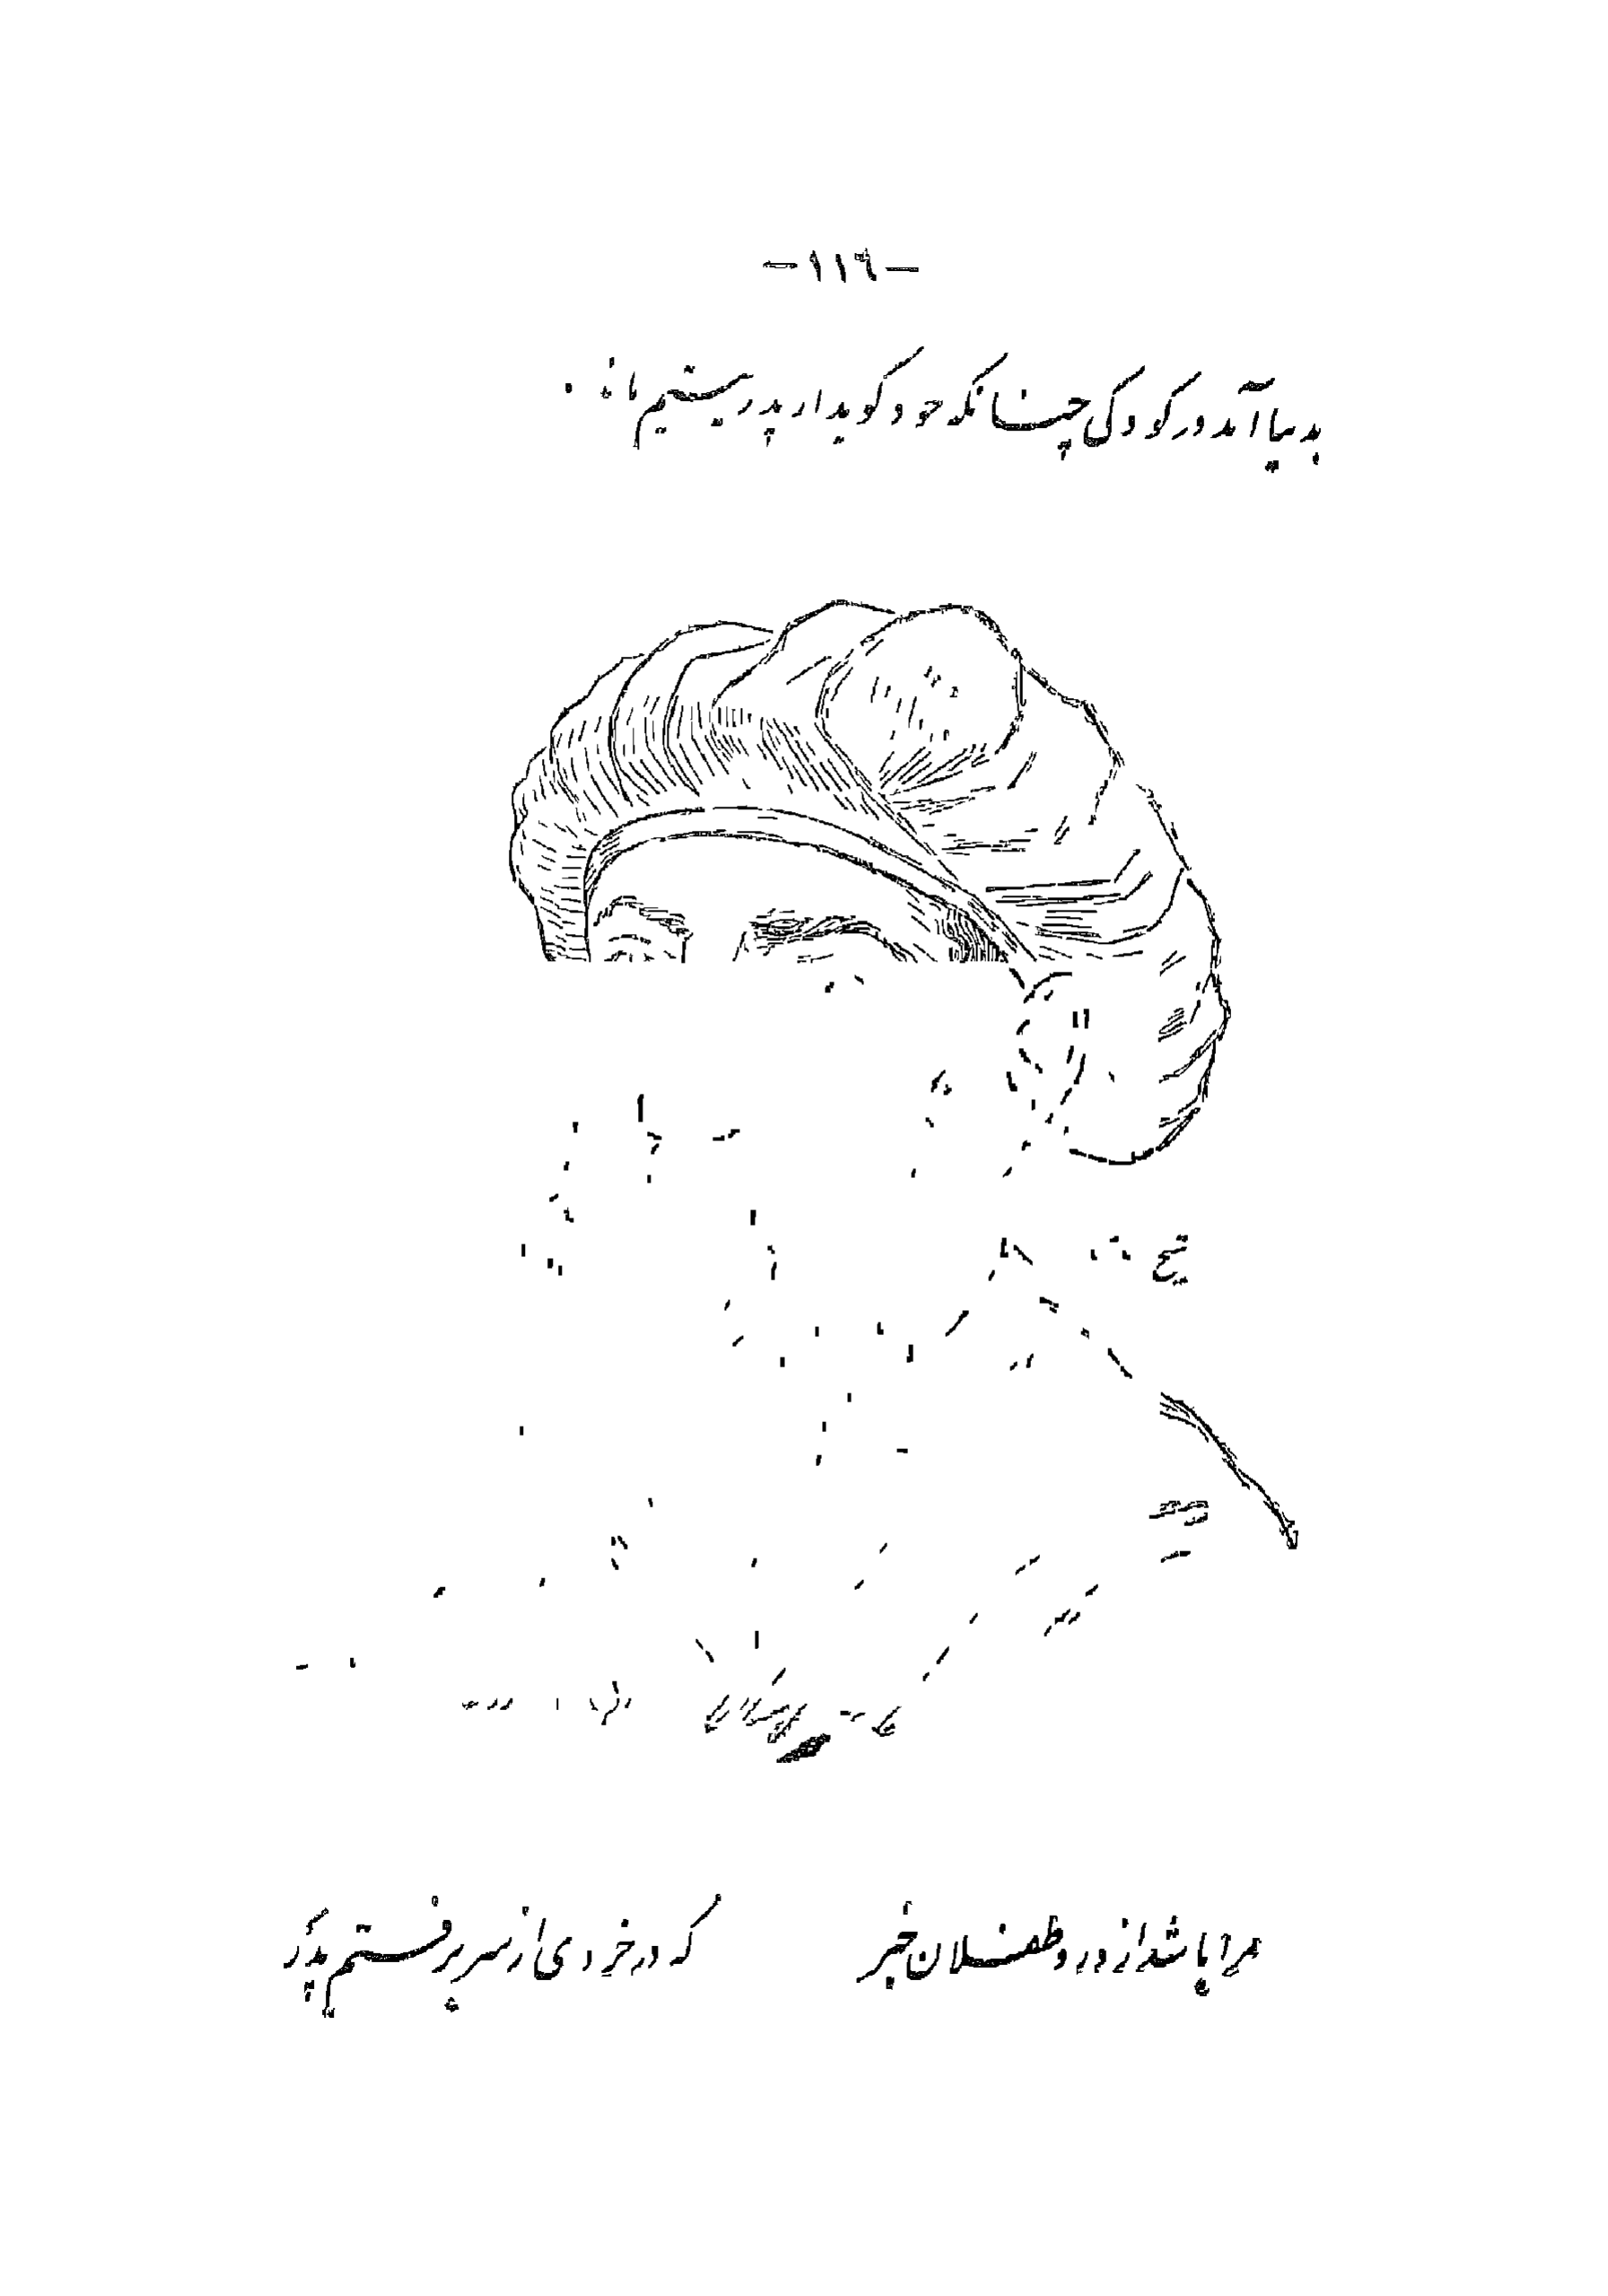 -١١٦-
بدنیا آمد در کودکی چنانکه خود گوید از پدر یتیم ماند .
مرا باشد از درد طفلان خبر
که در خردی از سر برفتم پدر